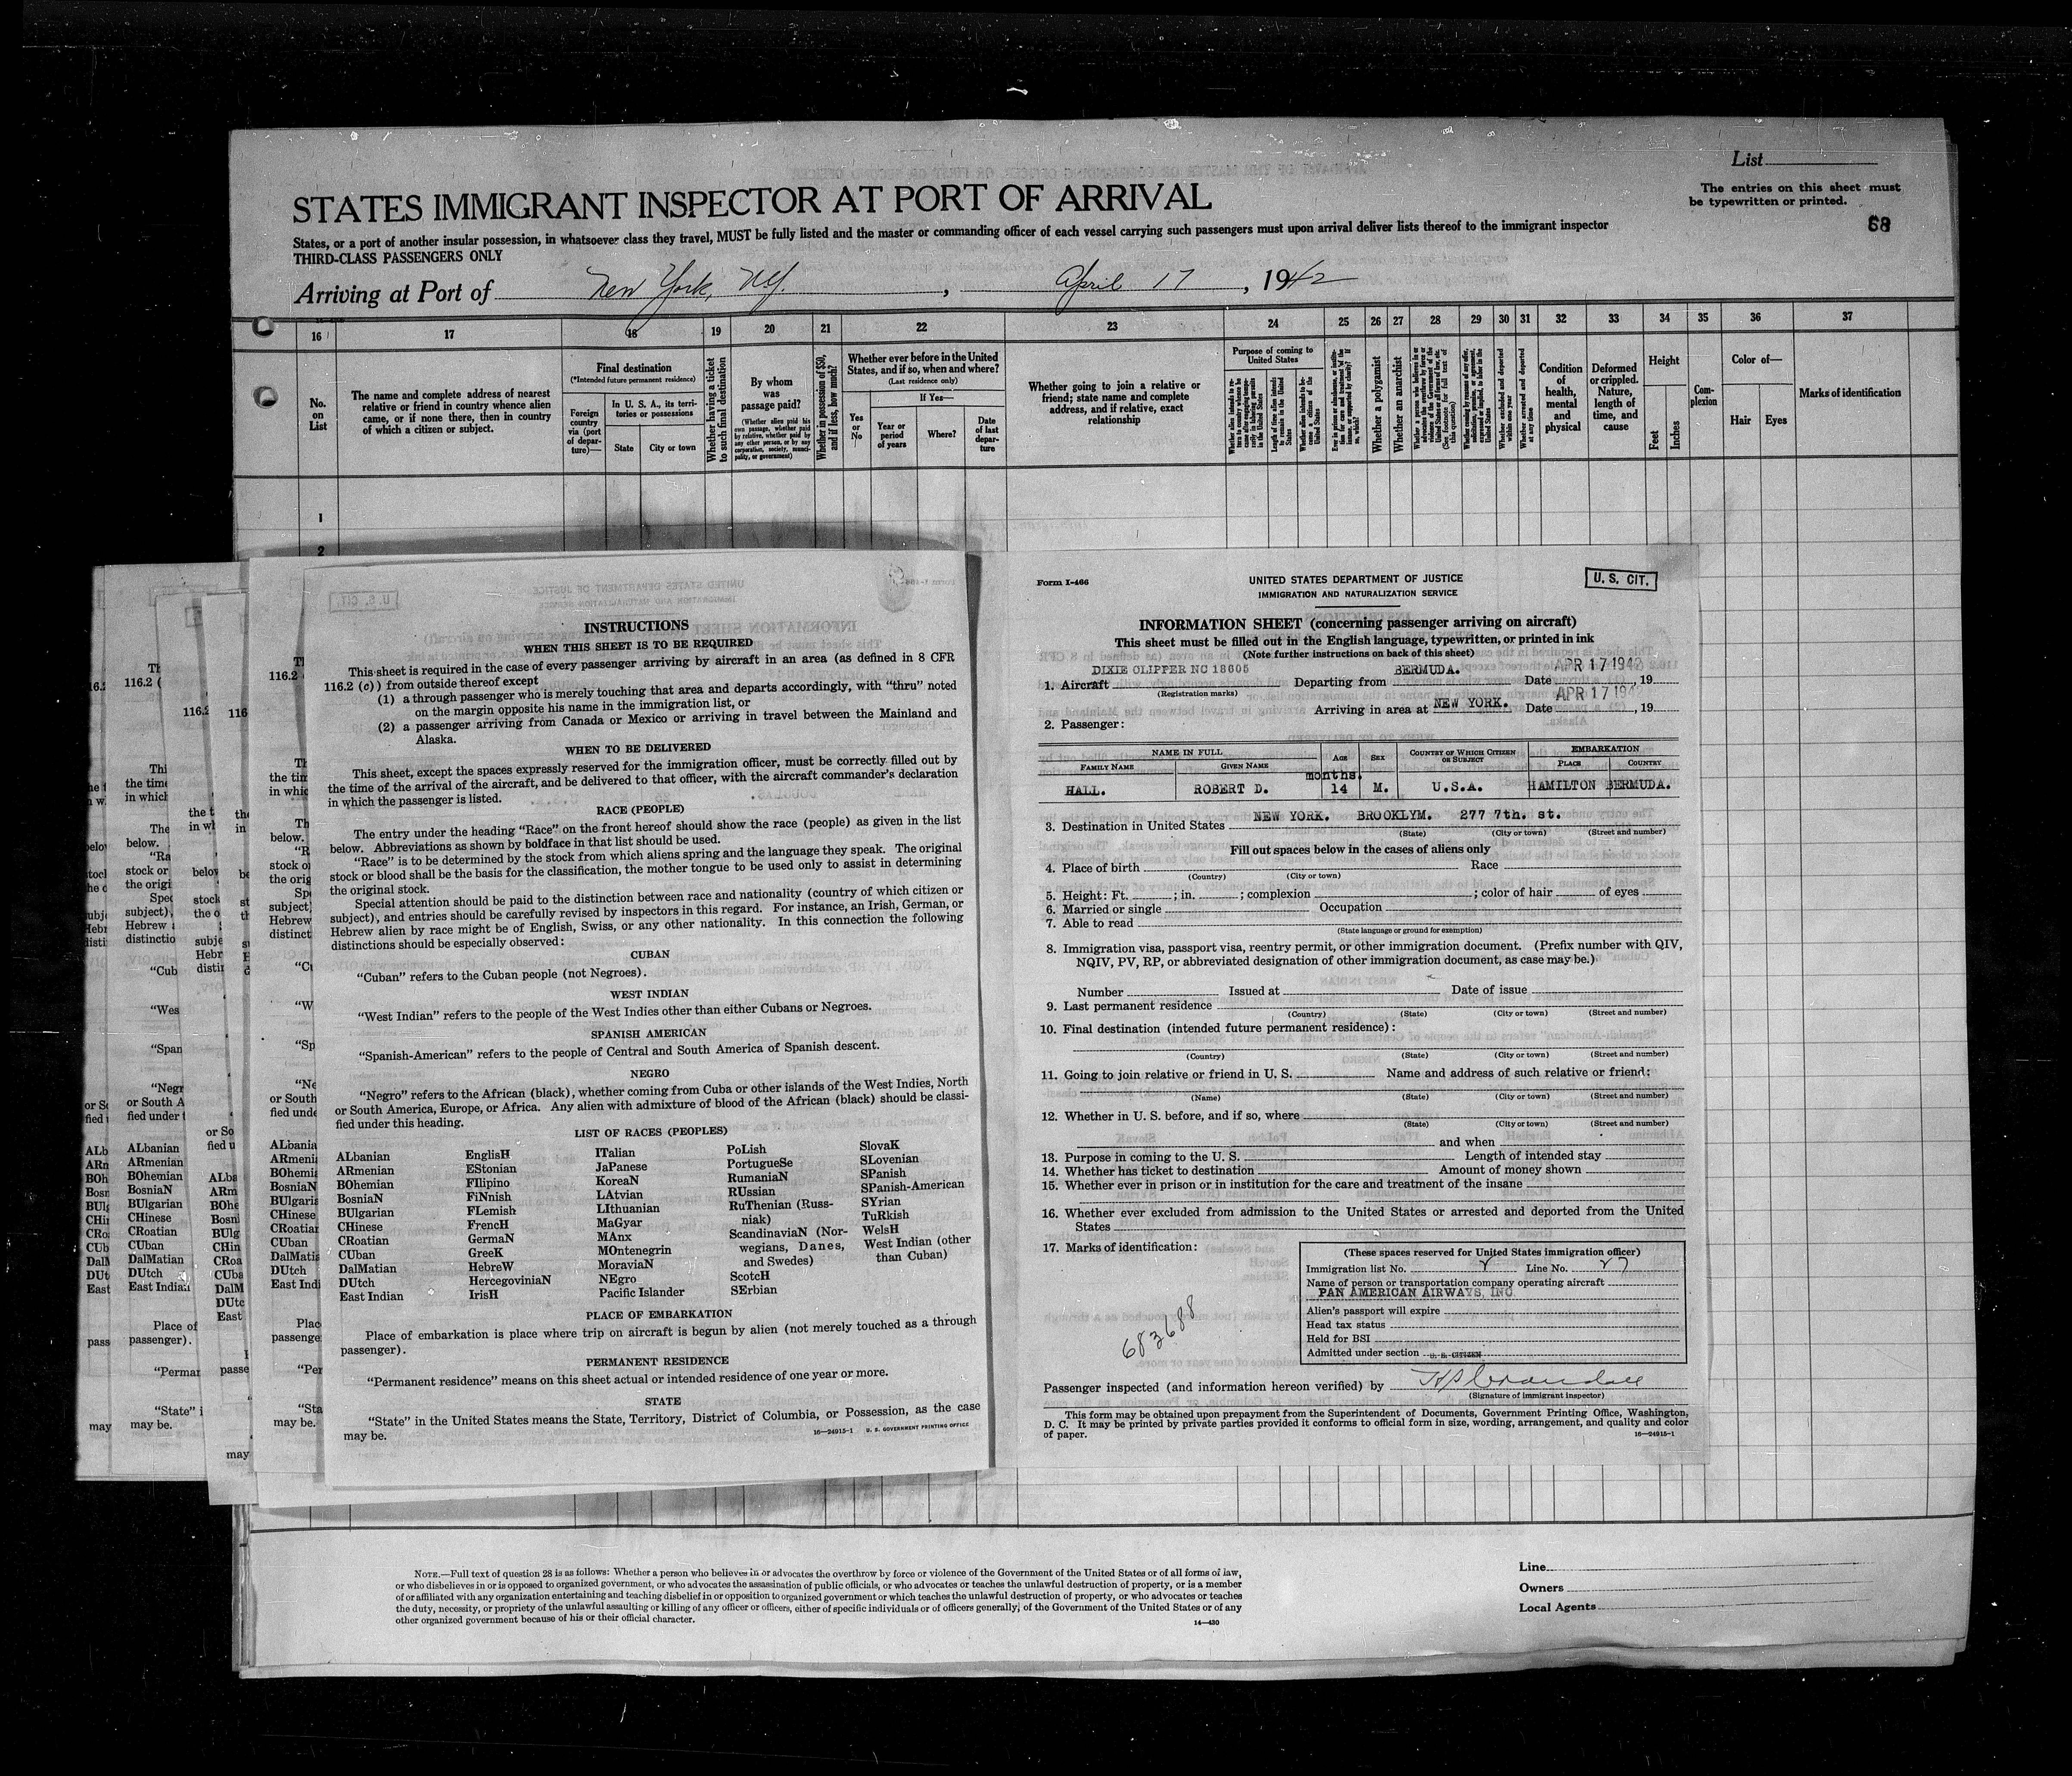 List
The entries on this sheet must
be typewritten or printed.
68
STATES IMMIGRANT INSPECTOR AT PORT OF ARRIVAL
States, or a port of another insular possession, in whatsoever class they travel, MUST be fully listed and the master or commanding officer of each vessel carrying such passengers must upon arrival deliver lists thereof to the immigrant inspector
THIRD-CLASS PASSENGERS ONLY
Arriving at Port of New York, NY. , April 17 , 1942
16 17 18 19 20 21 22 23 24 25 26 27 28 29 30 31 32 33 34 35 36 37
No. on List
The name and complete address of nearest
relative or friend in country whence alien
came, or if none there, then in country
of which a citizen or subject.
Final destination
(*Intended future permanent residence)
Foreign country via (port of departure)—
In U. S. A., its territories or possessions
State City or town
Whether having a ticket to such final destination
By whom was passage paid?
(Whether alien paid his own passage, whether paid by relative, whether paid by any other person, or by any corporation, society, municipality, or government)
Whether in possession of $50, and if less, how much?
Whether ever before in the United
States, and if so, when and where?
(Last residence only)
Yes or No
If Yes—
Year or period of years
Where?
Date of last departure
Whether going to join a relative or
friend; state name and complete
address, and if relative, exact
relationship
Purpose of coming to
United States
Whether a polygamist
Whether an anarchist
Condition of health, mental and physical
Deformed or crippled. Nature, length of time, and cause
Height
Feet Inches
Complexion
Color of—
Hair Eyes
Marks of identification
1
2
INSTRUCTIONS
WHEN THIS SHEET IS TO BE REQUIRED
This sheet is required in the case of every passenger arriving by aircraft in an area (as defined in 8 CFR
116.2 (c)) from outside thereof except
(1) a through passenger who is merely touching that area and departs accordingly, with "thru" noted
on the margin opposite his name in the immigration list, or
(2) a passenger arriving from Canada or Mexico or arriving in travel between the Mainland and
Alaska.
WHEN TO BE DELIVERED
This sheet, except the spaces expressly reserved for the immigration officer, must be correctly filled out by
the time of the arrival of the aircraft, and be delivered to that officer, with the aircraft commander's declaration
in which the passenger is listed.
RACE (PEOPLE)
The entry under the heading "Race" on the front hereof should show the race (people) as given in the list
below. Abbreviations as shown by boldface in that list should be used.
"Race" is to be determined by the stock from which aliens spring and the language they speak. The original
stock or blood shall be the basis for the classification, the mother tongue to be used only to assist in determining
the original stock.
Special attention should be paid to the distinction between race and nationality (country of which citizen or
subject), and entries should be carefully revised by inspectors in this regard. For instance, an Irish, German, or
Hebrew alien by race might be of English, Swiss, or any other nationality. In this connection the following
distinctions should be especially observed:
CUBAN
"Cuban" refers to the Cuban people (not Negroes).
WEST INDIAN
"West Indian" refers to the people of the West Indies other than either Cubans or Negroes.
SPANISH AMERICAN
"Spanish-American" refers to the people of Central and South America of Spanish descent.
NEGRO
"Negro" refers to the African (black), whether coming from Cuba or other islands of the West Indies, North
or South America, Europe, or Africa. Any alien with admixture of blood of the African (black) should be classi-
fied under this heading.
LIST OF RACES (PEOPLES)
ALbanian
ARmenian
BOhemian
BosniaN
BUlgarian
CHinese
CRoatian
CUban
DalMatian
DUtch
East Indian
EnglisH
EStonian
FIlipino
FiNnish
FLemish
FrencH
GermaN
GreeK
HebreW
HercegoviniaN
IrisH
ITalian
JaPanese
KoreaN
LAtvian
LIthuanian
MaGyar
MAnx
MOntenegrin
MoraviaN
NEgro
Pacific Islander
PoLish
PortugueSe
RumaniaN
RUssian
RuThenian (Russ-
niak)
ScandinaviaN (Nor-
wegians, Danes,
and Swedes)
ScotcH
SErbian
SlovaK
SLovenian
SPanish
SPanish-American
SYrian
TuRkish
WelsH
West Indian (other
than Cuban)
PLACE OF EMBARKATION
Place of embarkation is place where trip on aircraft is begun by alien (not merely touched as a through
passenger).
PERMANENT RESIDENCE
"Permanent residence" means on this sheet actual or intended residence of one year or more.
STATE
"State" in the United States means the State, Territory, District of Columbia, or Possession, as the case
may be.
16—24915-1 U. S. GOVERNMENT PRINTING OFFICE
Form I-466
UNITED STATES DEPARTMENT OF JUSTICE
IMMIGRATION AND NATURALIZATION SERVICE
U. S. CIT.
INFORMATION SHEET (concerning passenger arriving on aircraft)
This sheet must be filled out in the English language, typewritten, or printed in ink
(Note further instructions on back of this sheet)
1. Aircraft DIXIE CLIPPER NC 18605 Departing from BERMUDA. Date APR 17 1942, 19
(Registration marks)
Arriving in area at NEW YORK. Date APR 17 1942, 19
2. Passenger:
NAME IN FULL AGE SEX COUNTRY OF WHICH CITIZEN OR SUBJECT EMBARKATION
FAMILY NAME GIVEN NAME PLACE COUNTRY
months.
HALL. ROBERT D. 14 M. U.S.A. HAMILTON BERMUDA.
3. Destination in United States NEW YORK. BROOKLYM. 277 7th. st.
(State) (City or town) (Street and number)
Fill out spaces below in the cases of aliens only
4. Place of birth Race
(Country) (City or town)
5. Height: Ft. ; in. ; complexion ; color of hair of eyes
6. Married or single Occupation
7. Able to read
(State language or ground for exemption)
8. Immigration visa, passport visa, reentry permit, or other immigration document. (Prefix number with QIV,
NQIV, PV, RP, or abbreviated designation of other immigration document, as case may be.)
Number Issued at Date of issue
9. Last permanent residence
(Country) (State) (City or town) (Street and number)
10. Final destination (intended future permanent residence):
(Country) (State) (City or town) (Street and number)
11. Going to join relative or friend in U. S. Name and address of such relative or friend:
(Name) (State) (City or town) (Street and number)
12. Whether in U. S. before, and if so, where
(State) (City or town) (Street and number)
and when
13. Purpose in coming to the U. S. Length of intended stay
14. Whether has ticket to destination Amount of money shown
15. Whether ever in prison or in institution for the care and treatment of the insane
16. Whether ever excluded from admission to the United States or arrested and deported from the United
States
17. Marks of identification:
683688
(These spaces reserved for United States immigration officer)
Immigration list No. Line No. 27
Name of person or transportation company operating aircraft
PAN AMERICAN AIRWAYS, INC.
Alien's passport will expire
Head tax status
Held for BSI
Admitted under section U. S. CITIZEN
Passenger inspected (and information hereon verified) by
(Signature of immigrant inspector)
This form may be obtained upon prepayment from the Superintendent of Documents, Government Printing Office, Washington,
D. C. It may be printed by private parties provided it conforms to official form in size, wording, arrangement, and quality and color
of paper.
16—24915-1
NOTE.—Full text of question 28 is as follows: Whether a person who believes in or advocates the overthrow by force or violence of the Government of the United States or of all forms of law,
or who disbelieves in or is opposed to organized government, or who advocates the assassination of public officials, or who advocates or teaches the unlawful destruction of property, or is a member
of or affiliated with any organization entertaining and teaching disbelief in or opposition to organized government or which teaches the unlawful destruction of property, or who advocates or teaches
the duty, necessity, or propriety of the unlawful assaulting or killing of any officer or officers, either of specific individuals or of officers generally, of the Government of the United States or of any
other organized government because of his or their official character.
14—430
Line
Owners
Local Agents